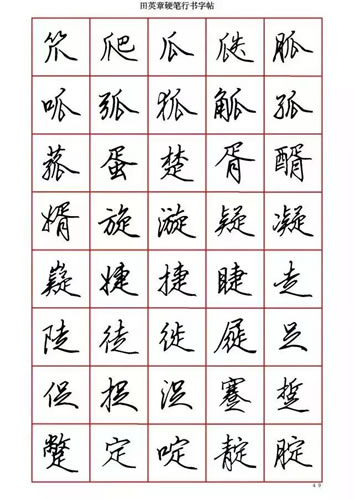 田英章硬笔行书字帖
笊爬瓜瓞胍
呱弧狐觚孤
菰蛋楚胥醑
婿旋漩疑凝
嶷婕捷睫走
陡徒徙屣足
促捉浞蹇踅
蹩定啶靛腚